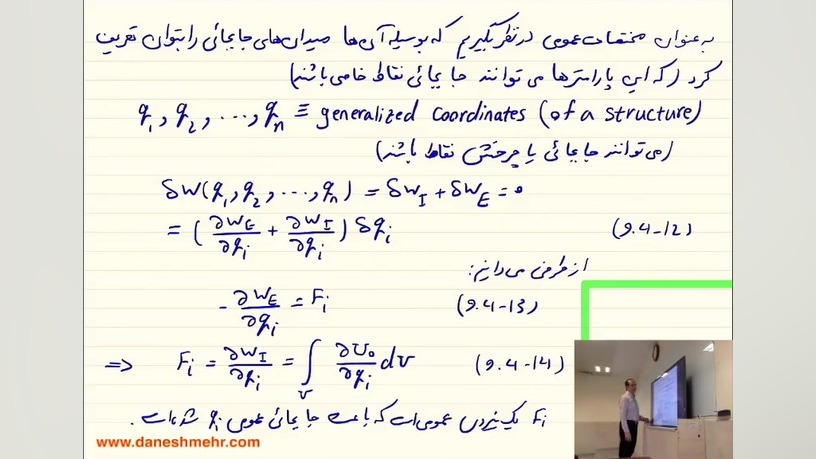 به عنوان مختصات عمومی در نظر بگیریم که بوسیله آن‌ها میدان‌های جابجائی را بتوان تعریف
کرد (که این پارامترها می توانند جابجائی نقاط خاصی باشند)
q₁, q₂, ..., qₙ ≡ generalized coordinates (of a structure)
(می توانند جابجائی یا چرخش نقاط باشند)
δW(q₁, q₂, ..., qₙ) = δW_I + δW_E = 0
= (∂W_E/∂q_i + ∂W_I/∂q_i) δq_i (9.4-12)
از طرفی می دانیم:
-∂W_E/∂q_i = F_i (9.4-13)
⇒ F_i = ∂W_I/∂q_i = ∫_v ∂U₀/∂q_i dv (9.4-14)
F_i یک نیروی عمومی است که باعث جابجائی عمومی q_i شده است.
www.daneshmehr.com